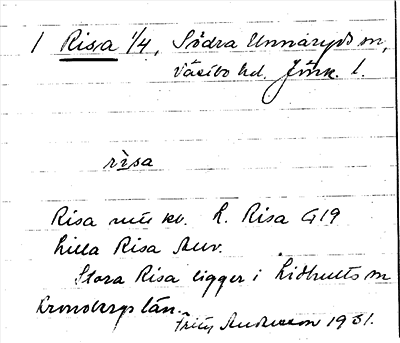 1 Risa 1/4, Södra Unnaryds sn,
Västbo hd. Jönk. l.
rìsa
Risa enl. kb. L. Risa G19
Lilla Risa Anv.
Stora Risa ligger i Lidhults sn
Kronobergs län.
Fritz Andersson 1931.